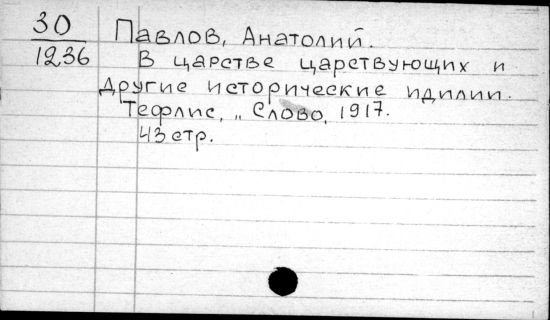 30
1236
Павлов, Анатолий.
В царстве царствующих и
другие исторические идилии.
Тефлис, „ Слово, 1917.
43 стр.